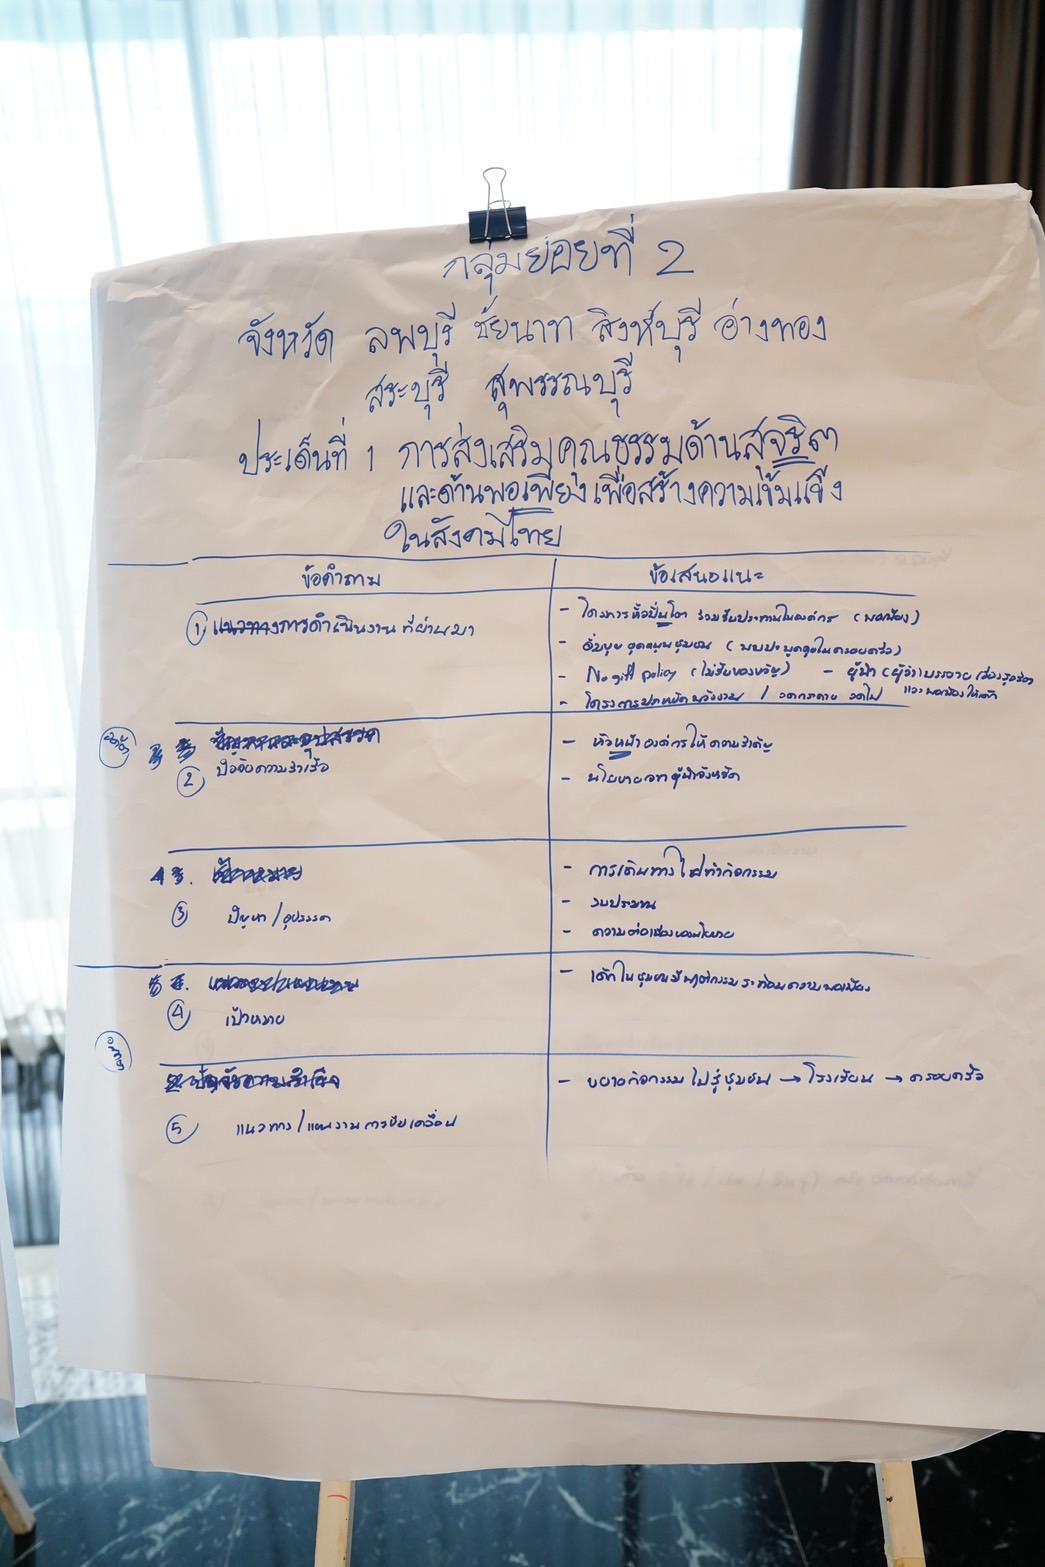 กลุ่มย่อยที่ 2
จังหวัด ลพบุรี ชัยนาท สิงห์บุรี อ่างทอง
สระบุรี สุพรรณบุรี
ประเด็นที่ 1 การส่งเสริมคุณธรรมด้านสุจริต
และด้านพอเพียงเพื่อสร้างความเข้มแข็ง
ในสังคมไทย
ข้อคำถาม ข้อเสนอแนะ
① แนวทางการดำเนินงานที่ผ่านมา
- โครงการหิ้วปิ่นโต ร่วมรับประทานในองค์กร (พอเพียง)
- อุดหนุนชุมชน (พบปะพูดคุยในครอบครัว)
- No gift policy (ไม่รับของขวัญ) - ผู้นำ (ผู้ว่า) บรรยายเรื่องสุจริต
และพอเพียงให้
- โครงการประหยัดพลังงาน / ลดกระดาษ ลดไฟ
ปัญหาและอุปสรรค
② ปัจจัยความสำเร็จ
- หัวหน้าองค์กรให้ความสำคัญ
- นโยบายจากผู้นำจังหวัด
เป้าหมาย
③ ปัญหา/อุปสรรค
- การเดินทางไปทำกิจกรรม
- งบประมาณ
- ความต่อเนื่องของนโยบาย
④ เป้าหมาย
- เด็กในชุมชนมีพฤติกรรมสะท้อนความพอเพียง
ปัจจัยความสำเร็จ
⑤ แนวทาง/แผนงานการขับเคลื่อน
- ขยายกิจกรรมไปสู่ชุมชน → โรงเรียน → ครอบครัว